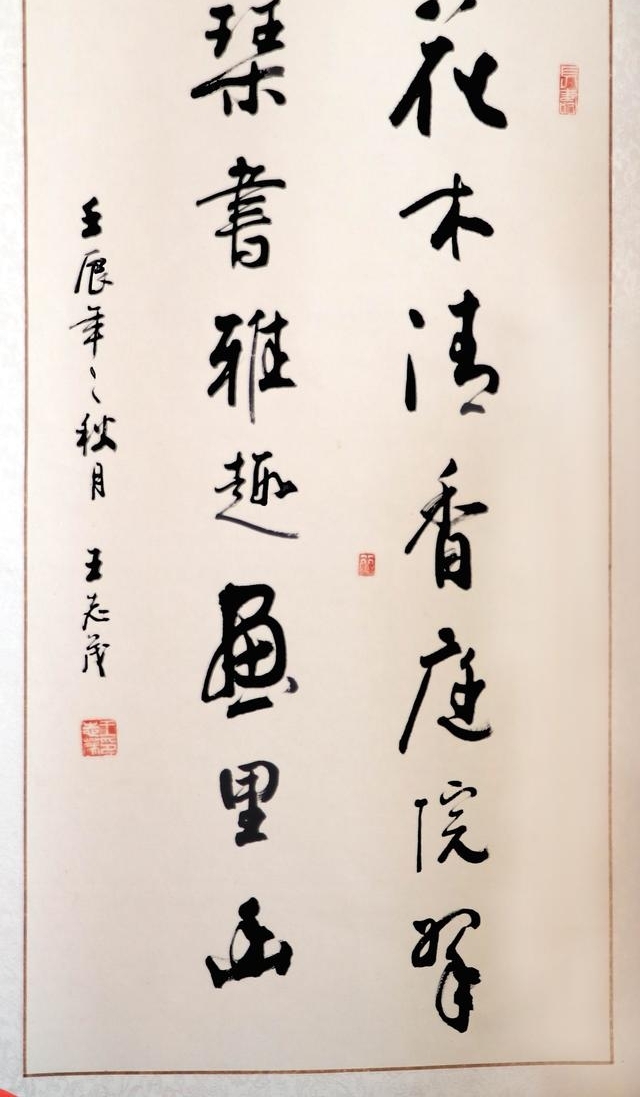 花木清香庭院翠
琴書雅趣畫里幽
壬辰年之秋月 王志茂